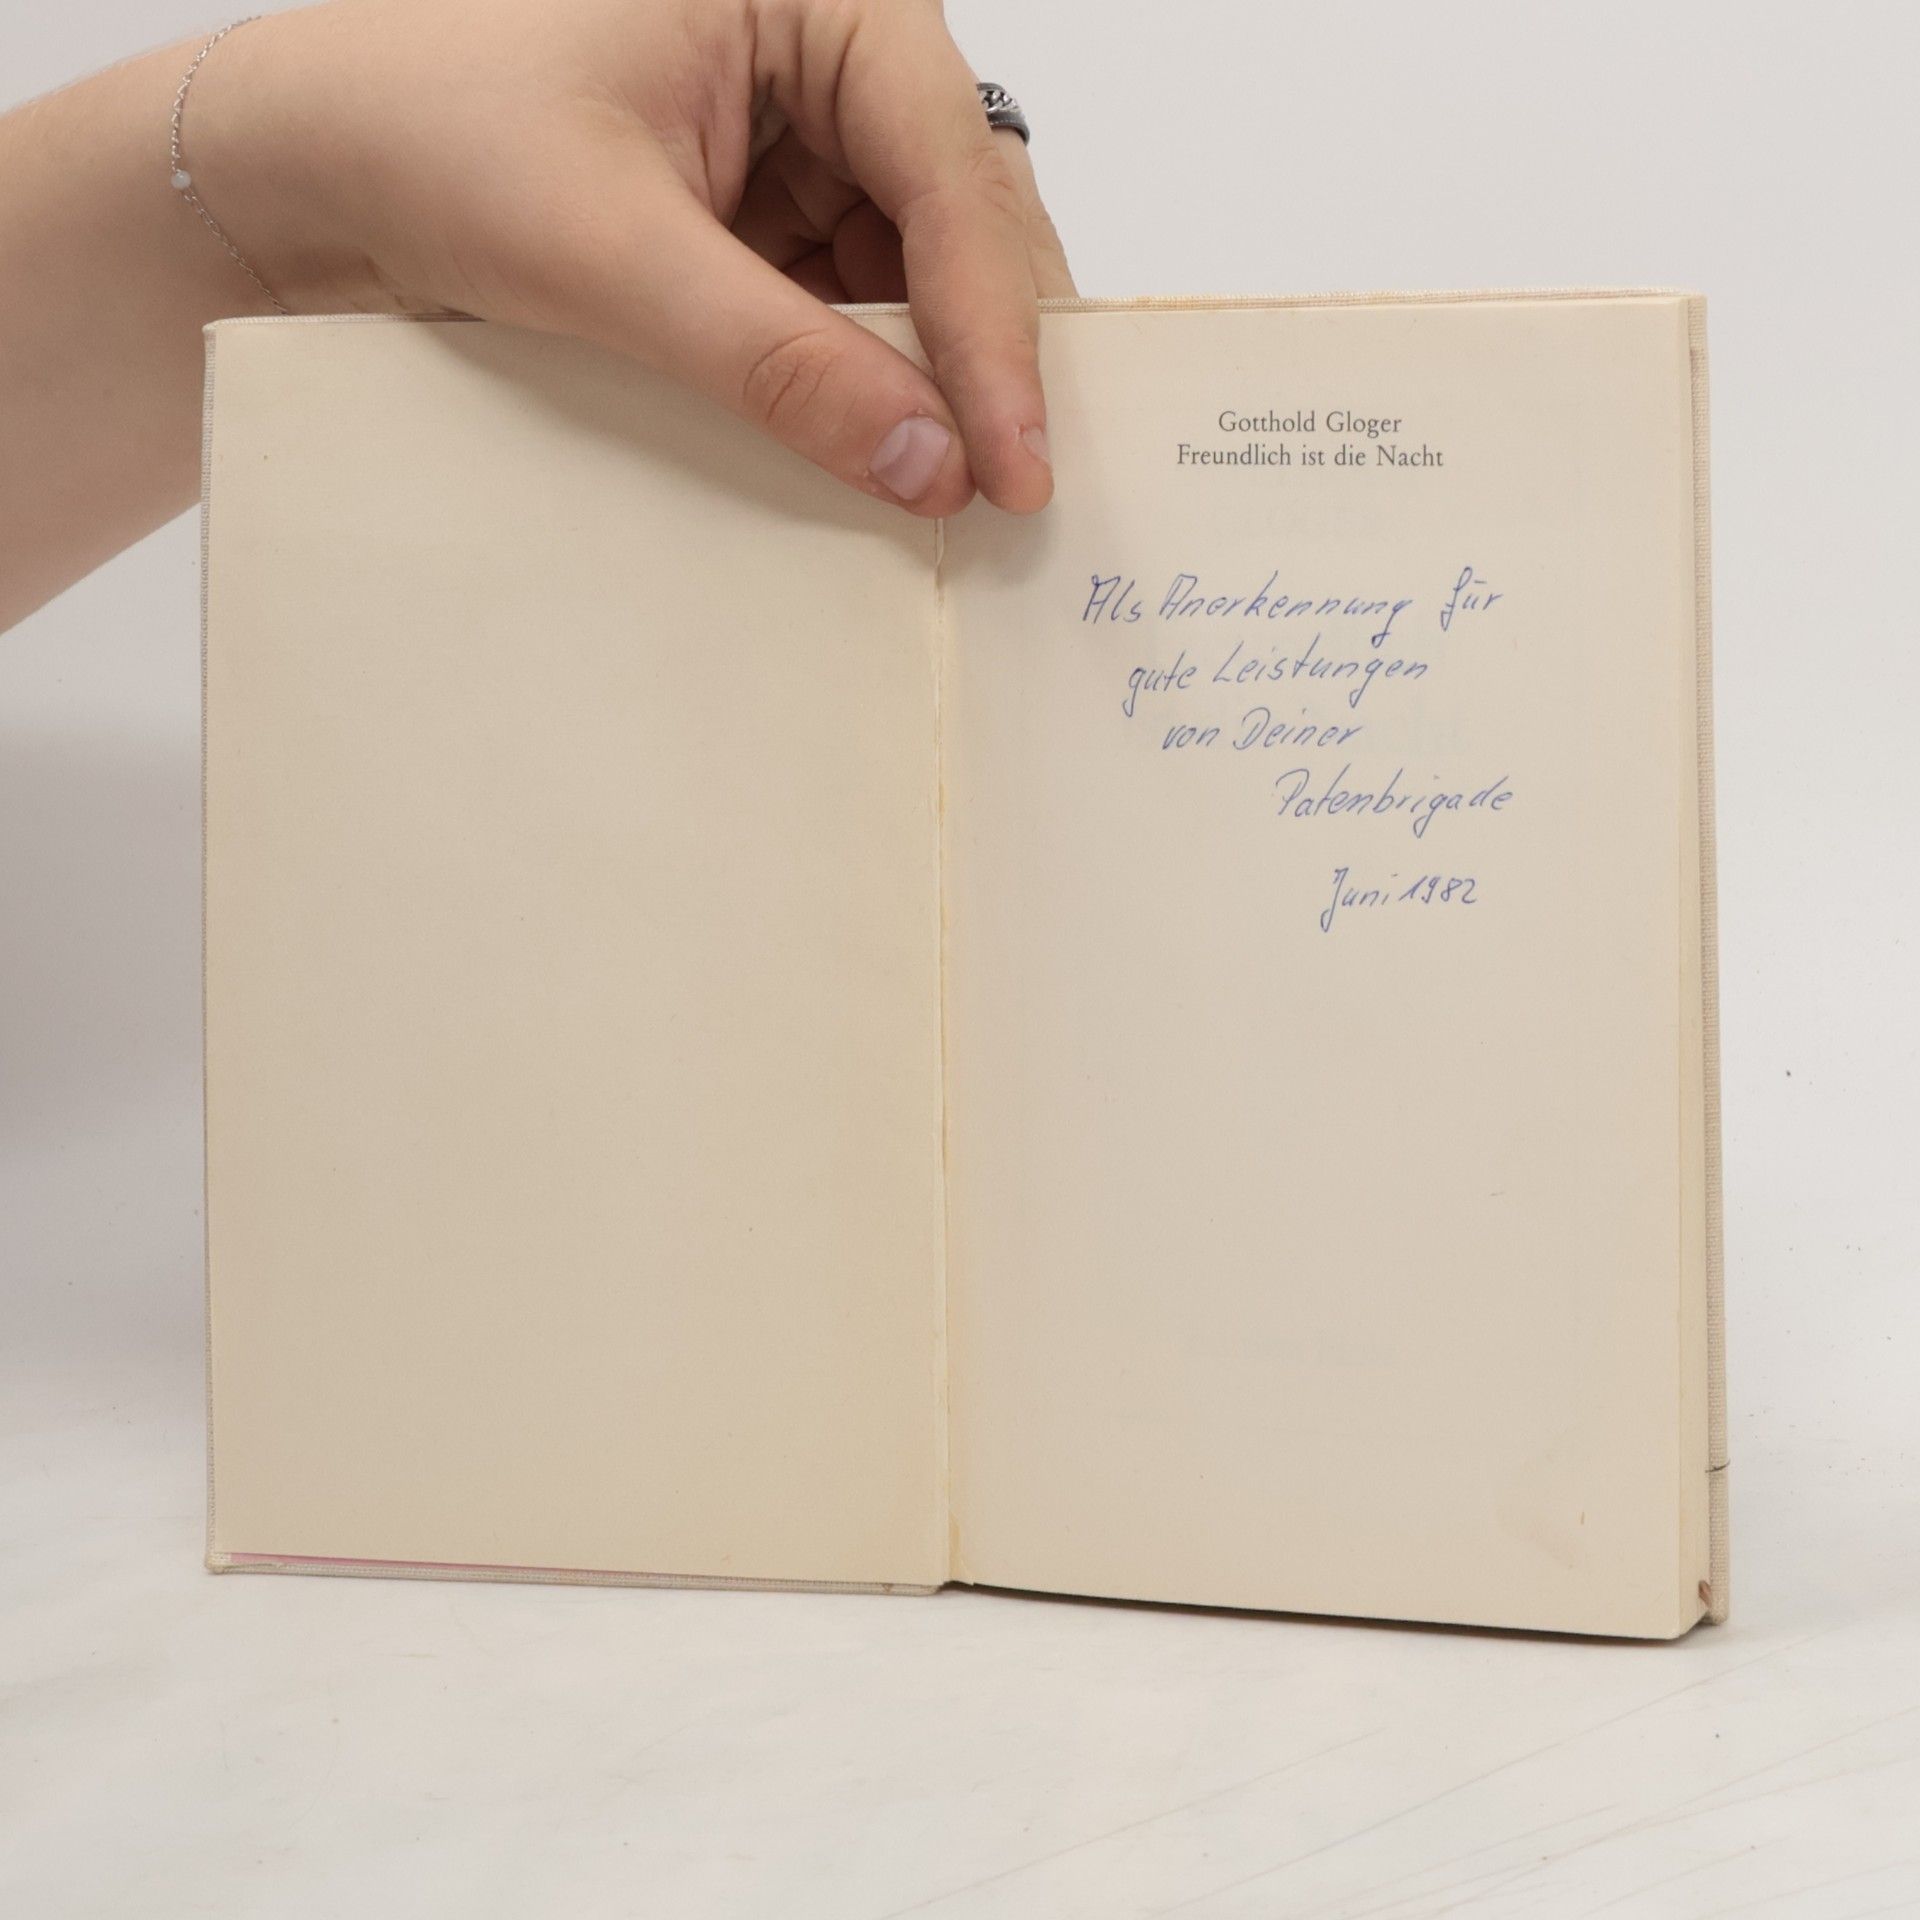 Gotthold Gloger
Freundlich ist die Nacht
Als Anerkennung für
gute Leistungen
von Deiner
Patenbrigade
Juni 1982